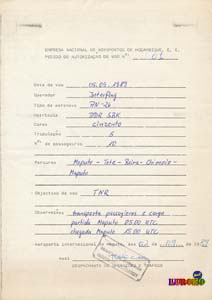 EMPRESA NACIONAL DE AEROPORTOS DE MOÇAMBIQUE, E. E.
PEDIDO DE AUTORIZAÇÃO DE VOO Nº 01
Data do voo 05.03.1989
Operador Interflug
Tipo de aeronave AN-26
Matrícula DDR SBK
Cores cinzento
Tripulação 6
Nº de passageiros 10
Percurso Maputo - Tete - Beira - Chimoio -
Maputo
Objectivo do voo TNR
Observações transporta passageiros e carga
partida Maputo 05.00 UTC
chegada Maputo 15.00 UTC
Aeroporto Internacional de Maputo, aos
DESPACHANTE DE OPERAÇÕES E TRÁFEGO